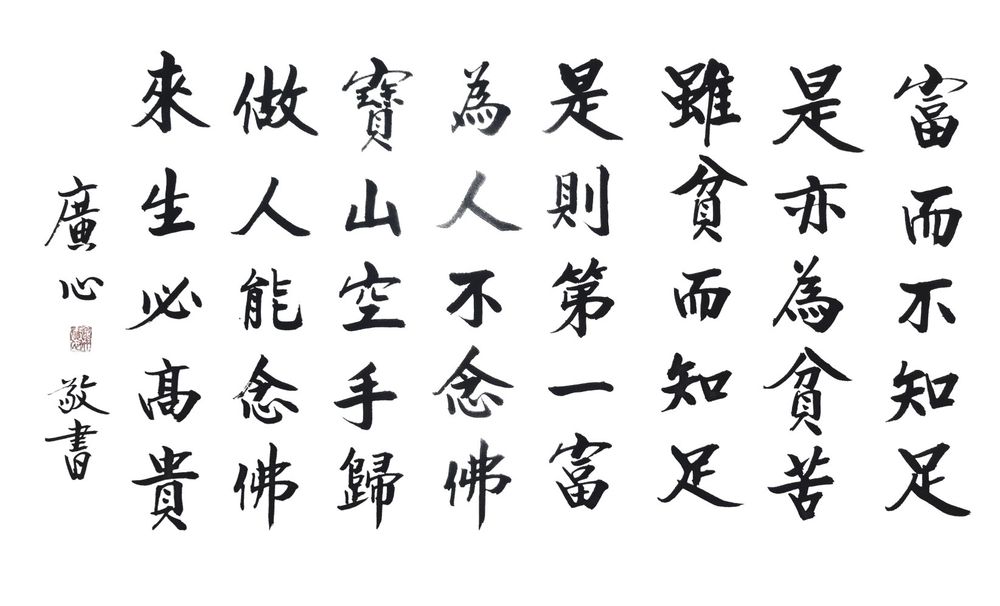 富而不知足
是亦為貧苦
雖貧而知足
是則第一富
為人不念佛
寶山空手歸
做人能念佛
來生必高貴
廣心 敬書